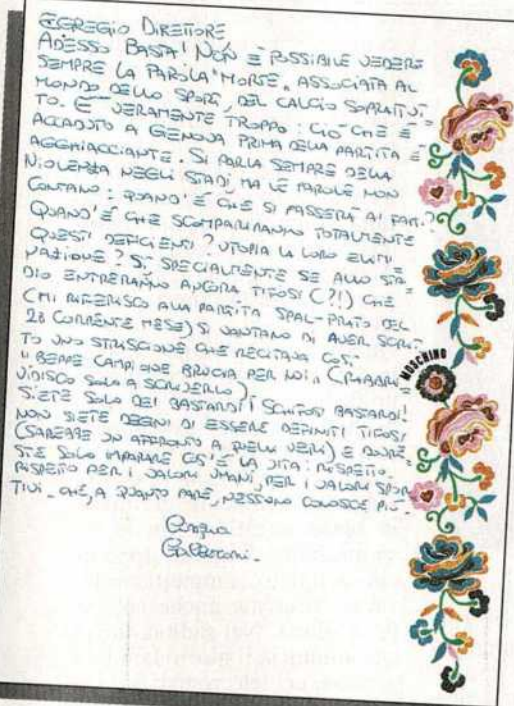 EGREGIO DIRETTORE
ADESSO BASTA! NON È POSSIBILE VEDERE
SEMPRE LA PAROLA "MORTE" ASSOCIATA AL
MONDO DELLO SPORT, DEL CALCIO SOPRATTUT=
TO. È VERAMENTE TROPPO: CIÒ CHE È
ACCADUTO A GENOVA PRIMA DELLA PARTITA È
AGGHIACCIANTE. SI PARLA SEMPRE DELLA
VIOLENZA NEGLI STADI MA LE PAROLE NON
CONTANO: QUAND'È CHE SI PASSERÀ AI FATTI?
QUAND'È CHE SCOMPARIRANNO TOTALMENTE
QUESTI DEFICIENTI? UTOPIA LA LORO ELIMI=
NAZIONE? SÌ, SPECIALMENTE SE ALLO STA=
DIO ENTRERANNO ANCORA TIFOSI (?!) CHE
(MI RIFERISCO ALLA PARTITA SPAL-PRATO DEL
28 CORRENTE MESE) SI VANTANO DI AVER SCRIT=
TO UNO STRISCIONE CHE RECITAVA COSÌ:
"BEPPE CAMPIONE BRUCIA PER NOI" (RABBRI=
VIDISCO SOLO A SCRIVERLO)
SIETE SOLO DEI BASTARDI! SCHIFOSI BASTARDI!
NON SIETE DEGNI DI ESSERE DEFINITI TIFOSI
(SAREBBE UN AFFRONTO A QUELLI VERI) E DOVRE=
STE SOLO IMPARARE COS'È LA VITA: RISPETTO.
RISPETTO PER I VALORI UMANI, PER I VALORI SPOR
TIVI. CHE, A QUANTO PARE, NESSUNO CONOSCE PIÙ.
MOSCHINO